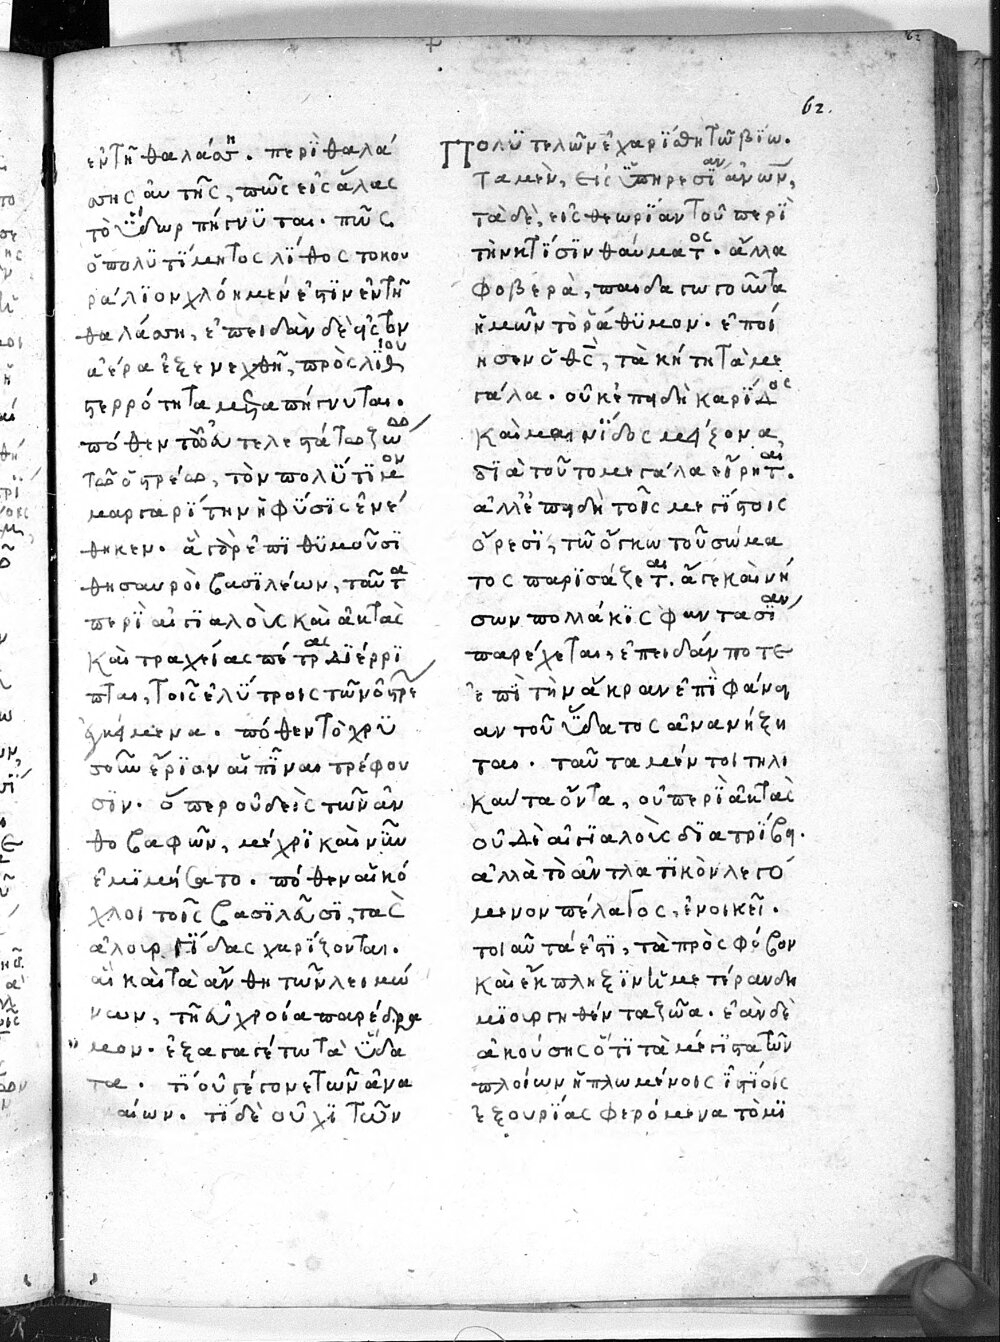 62
62.
ἐν τῆ θαλάσση. περὶ θαλά
σσης αὐτῆς, πῶς εἰς ἅλας
τὸ ὕδωρ πήγνυται. πῶς
ὁ πολυτίμητος λίθος τὸ κου
ράλιον χλόη μέν ἐστιν ἐν τῆ
θαλάσση, ἐπειδὰν δὲ εἰς τὸν
ἀέρα ἐξενεχθῆ, πρὸς λίθου
στερρότητα μεταπήγνυται.
πόθεν τῶ εὐτελεστάτω ζώω
τῶ ὀστρέω, τὸν πολύτιμον
μαργαρίτην ἡ φύσις ἐνέ
θηκεν. ἃ γὰρ ἐπιθυμοῦσι
θησαυροὶ βασιλέων, ταῦτα
περὶ αἰγιαλοὺς καὶ ἀκτὰς
καὶ τραχείας πέτρας διέρρι
πται, τοῖς ἐλύτροις τῶν ὀστρέ
κείμενα. πόθεν τὸ χρυ
σοῦν ἔριον αἱ πῖναι τρέφου
σιν. ὅπερ οὐδεὶς τῶν ἀν
θοβαφῶν, μέχρι καὶ νῦν
ἐμιμήσατο. πόθεν αἱ κό
χλοι τοῖς βασιλεῦσι, τὰς
ἁλουργίδας χαρίζονται.
αἳ καὶ τὰ ἄνθη τῶν λειμώ
νων, τῆ εὐχροία παρέδρα
μον. ἐξαγαγέτω τὰ ὕδα
τα. τί οὐ γέγονε τῶν ἀνα
καίων. τί δὲ οὐχὶ τῶν
Πολυτελῶν ἐχαρίσθη τῶ βίω.
τὰ μὲν, εἰς ὑπηρεσίαν ἀνῶν,
τὰ δὲ, εἰς θεωρίαν τοῦ περὶ
τὴν κτίσιν θαύματος. ἄλλα
φοβερὰ, παιδαγωγοῦντα
ἡμῶν τὸ ῥάθυμον. ἐποί
ησεν ὁ θς, τὰ κήτη τὰ με
γάλα. οὐκ ἐπειδὴ καρίδος
καὶ μαινίδος μείζονα,
διὰ τοῦτο μεγάλα εἴρηται.
ἀλλ' ἐπειδὴ τοῖς μεγίστοις
ὄρεσι, τῶ ὄγκω τοῦ σώμα
τος παρισάζεται. ἅ γε καὶ νή
σων πολλάκις φαντασίαν
παρέχεται, ἐπειδάν ποτε
ἐπὶ τὴν ἄκραν ἐπιφάνει
αν τοῦ ὕδατος ἀνανήξη
ται. ταῦτα μέν τοι τηλι
καῦτα ὄντα, οὐ περὶ ἀκτὰς
οὐδὲ αἰγιαλοὺς διατρίβει.
ἀλλὰ τὸ ἀντλατικὸν λεγό
μενον πέλαγος, ἐνοικεῖ.
τοιαῦτά ἐστι, τὰ πρὸς φόβον
καὶ ἔκπληξιν ἡμετέραν δη
μιουργηθέντα ζῶα. ἐὰν δὲ
ἀκούσης ὅτι τὰ μέγιστα τῶν
πλοίων ἡπλωμένοις ἱστίοις
ἐξ οὐρίας φερόμενα τὸ μι